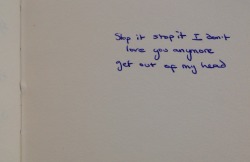 Stop it stop it I don't
love you anymore
get out of my head